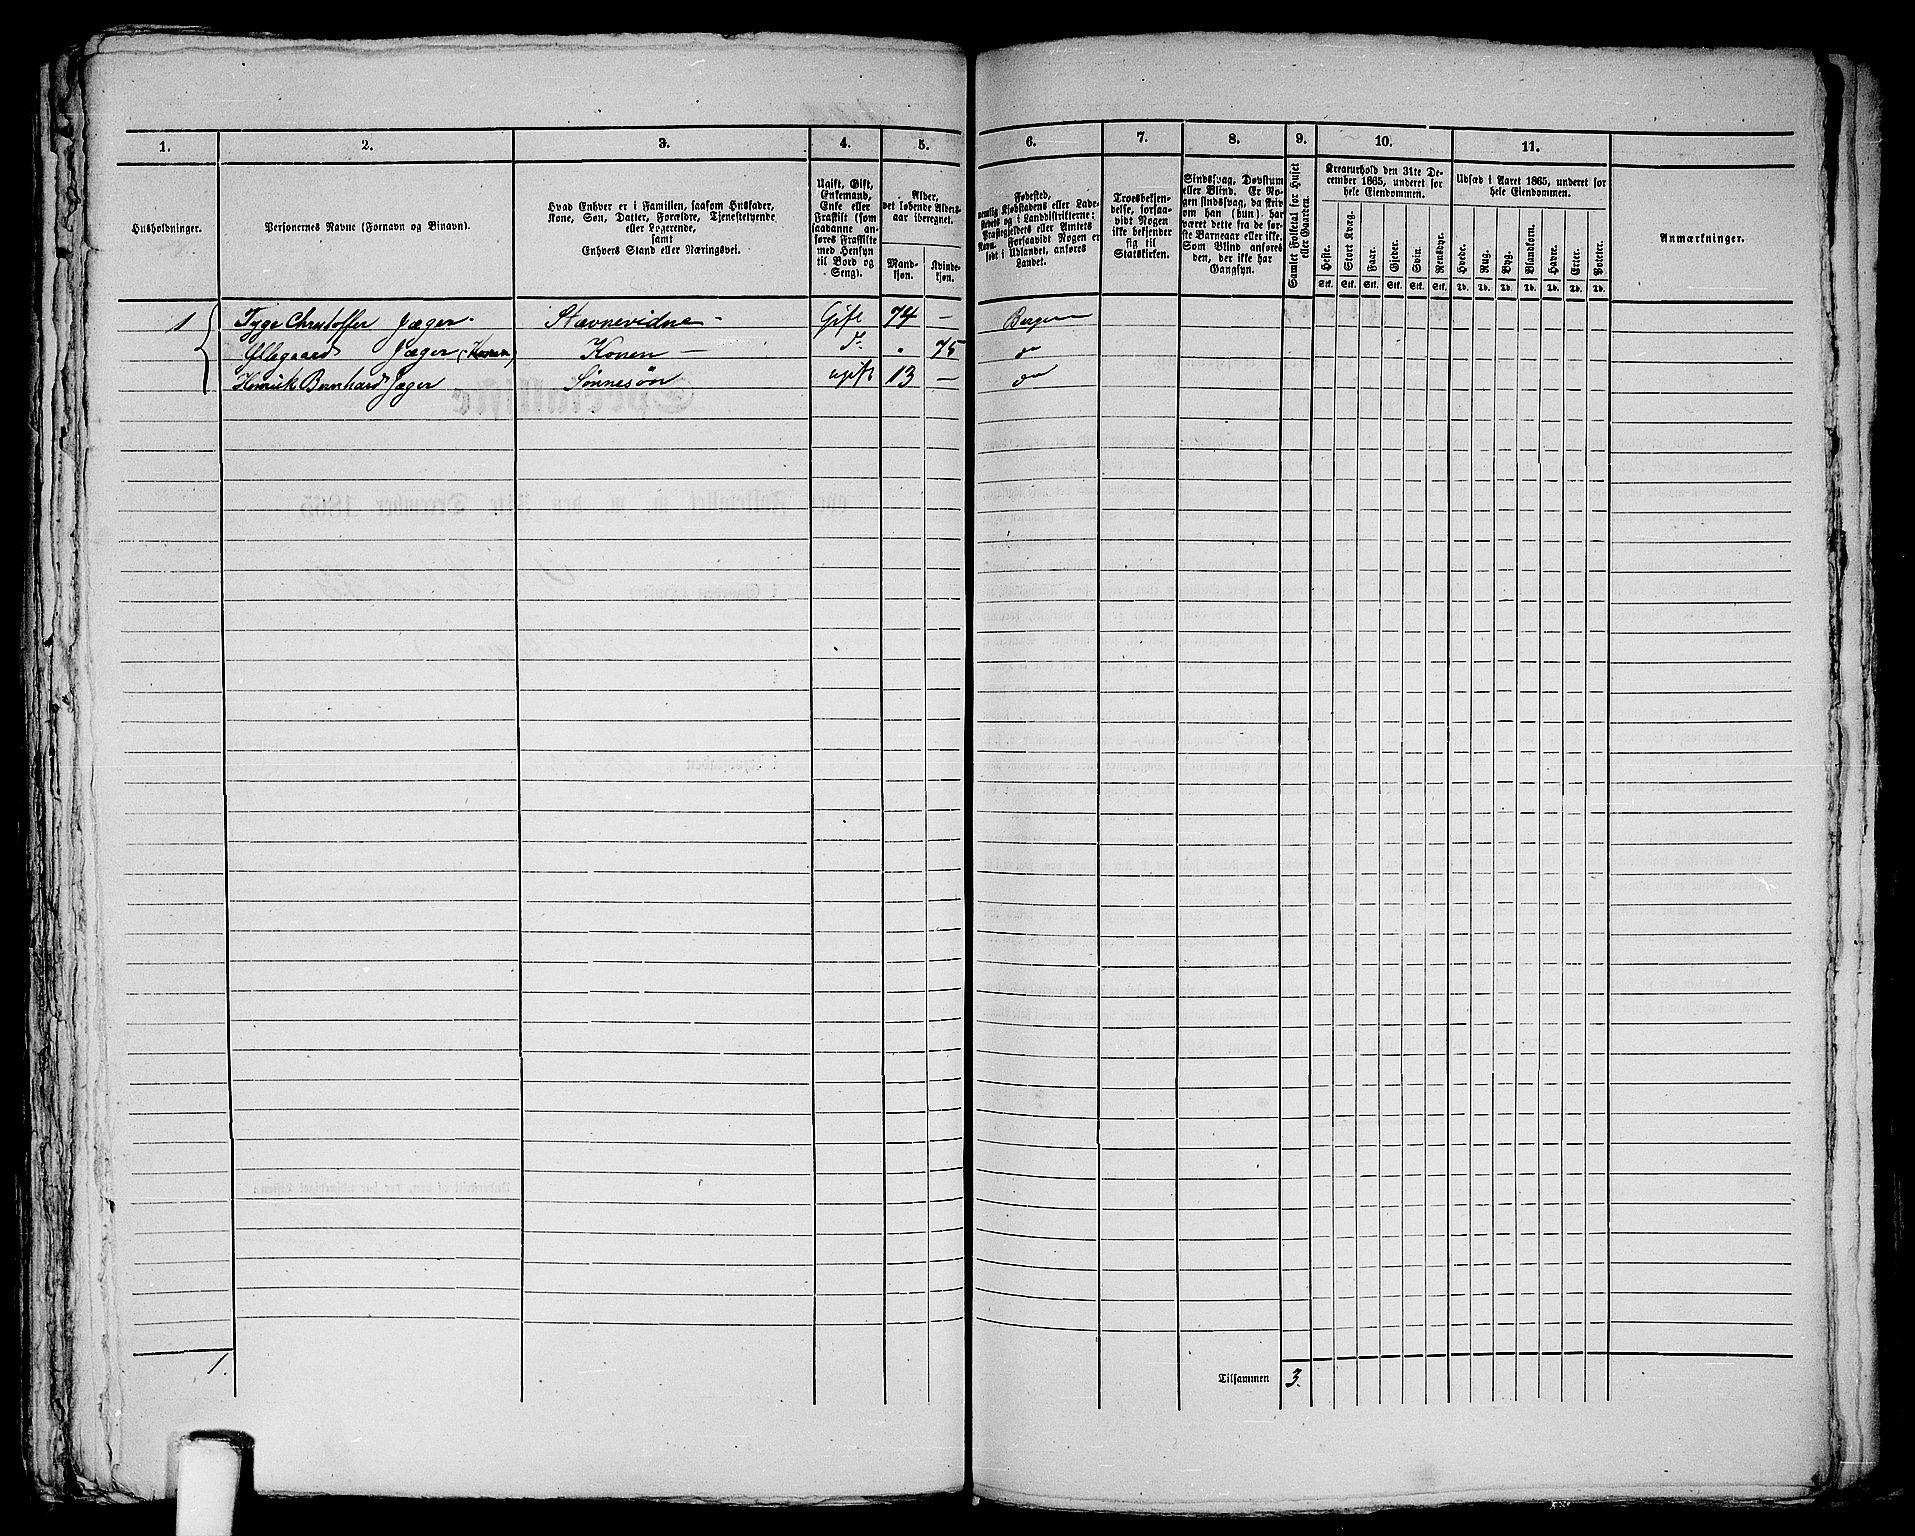 1.
2.
3.
4.
5.
6.
7.
8.
9.
10.
11.
Husholdninger.
Personernes Navne (Fornavn og Binavn).
Hvad Enhver er i Familien, saasom Husfader,
Kone, Søn, Datter, Forældre, Tjenestetyende
eller Logerende,
samt
Enhvers Stand eller Næringsvei.
Ugift, Gift,
Enkemand,
Enke eller
Fraskilt (som
saadanne an-
føres Fraskilte
med Hensyn
til Bord og
Seng).
Alder,
det løbende Alders-
aar iberegnet.
Mand-
kjøn.
Kvinde-
kjøn.
Fødested,
nemlig Kjøbstadens eller Lade-
stedets og i Landdistrikterne:
Præstegjeldets eller Amtets
Navn. Forsaavidt Nogen er
født i Udlandet, anføres
Landet.
Troesbekjen-
delse, forsaa-
vidt Nogen
ikke bekjender
sig til
Statskirken.
Sindssvag, Døvstum
eller Blind. Er No-
gen sindssvag, da skriv
om han (hun) har
været dette fra de før-
ste Barneaar eller ikke.
Som Blind anføres
den, der ikke har
Gangsyn.
Samlet Folketal for Huset
eller Gaarden.
Kreaturhold den 31te De-
cember 1865, underet for
hele Eiendommen.
Heste.
Stort Kvæg.
Faar.
Gjeder.
Svin.
Rensdyr.
Stk. Stk. Stk. Stk. Stk. Stk.
Udsæd i Aaret 1865, underet for
hele Eiendommen.
Hvede.
Rug.
Byg.
Blandkorn.
Havre.
Erter.
Poteter.
Td. Td. Td. Td. Td. Td. Td.
Anmærkninger.
1 Tyge Christoffer Jæger. Stævnevidne — Gift 74 — Bergen
Ollegaard Jæger (Konen) Konen — d. . 75 do
Henrick Bernhard Jæger Sønnesøn ugift 13 — do
1.
Tilsammen 3.